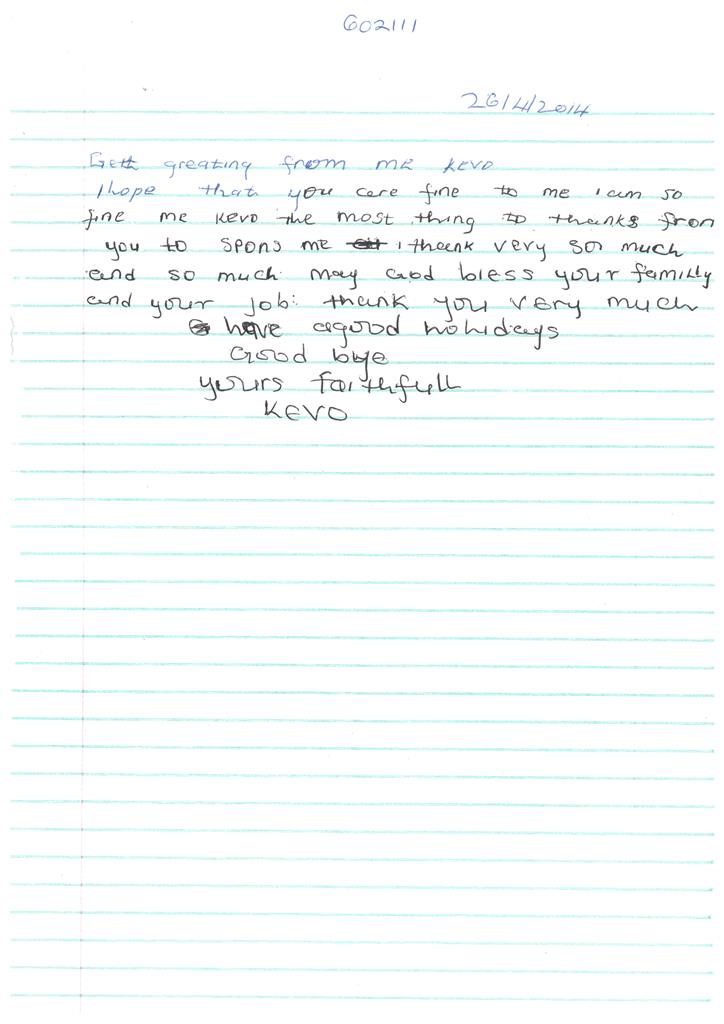 602111
26/4/2014
Gett greating from me KEVO
I hope that you are fine to me i am so
fine me KEVO the most thing to thanks fron
you to spons me i thank very so much
and so much may God bless your familly
and your job: thank you very much
have agood holidays
Good bye
yours faithfull
KEVO